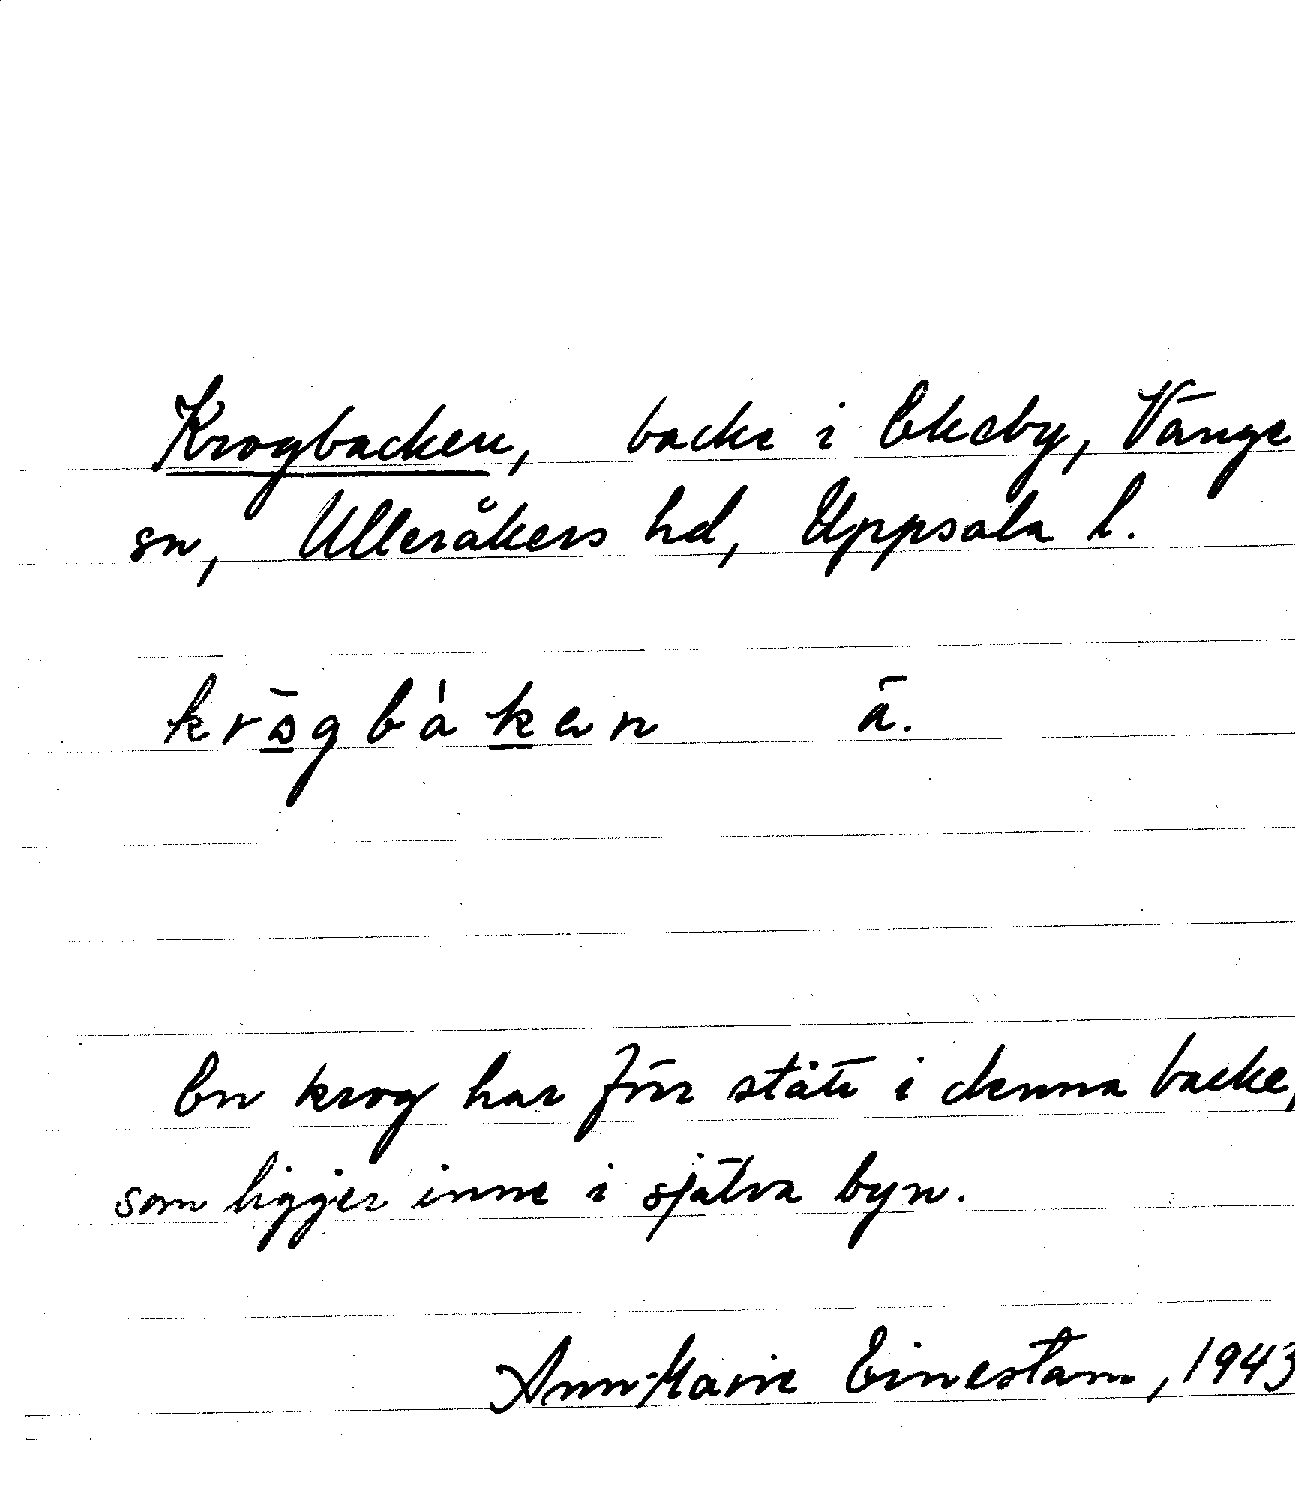 Krogbacken, backe i Ekeby, Vänge
sn, Ulleråkers hd, Uppsala l.
krōgbàken ā.
En krog har förr stått i denna backe,
som ligger inne i själva byn.
Ann-Marie Einestam, 1943